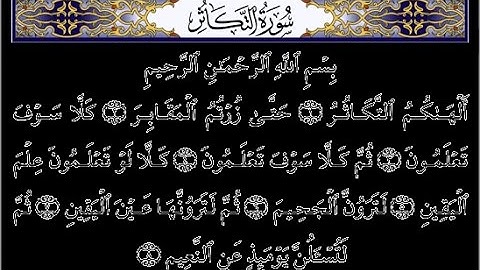 سُورَةُ التَّكَاثُرِ
بِسْمِ ٱللَّهِ ٱلرَّحْمَٰنِ ٱلرَّحِيمِ
أَلْهَىٰكُمُ ٱلتَّكَاثُرُ ۝١ حَتَّىٰ زُرْتُمُ ٱلْمَقَابِرَ ۝٢ كَلَّا سَوْفَ
تَعْلَمُونَ ۝٣ ثُمَّ كَلَّا سَوْفَ تَعْلَمُونَ ۝٤ كَلَّا لَوْ تَعْلَمُونَ عِلْمَ
ٱلْيَقِينِ ۝٥ لَتَرَوُنَّ ٱلْجَحِيمَ ۝٦ ثُمَّ لَتَرَوُنَّهَا عَيْنَ ٱلْيَقِينِ ۝٧ ثُمَّ
لَتُسْـَٔلُنَّ يَوْمَئِذٍ عَنِ ٱلنَّعِيمِ ۝٨